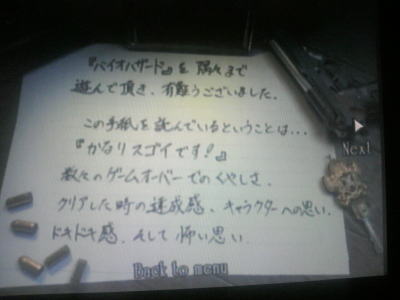 『バイオハザード』を隅々まで
遊んで頂き、有難うございました。
この手紙を読んでいるということは...
『かなりスゴイです!』
数々のゲームオーバーでのくやしさ、
クリアした時の達成感、キャラクターへの思い、
ドキドキ感、そして怖い思い
Next
Back to menu